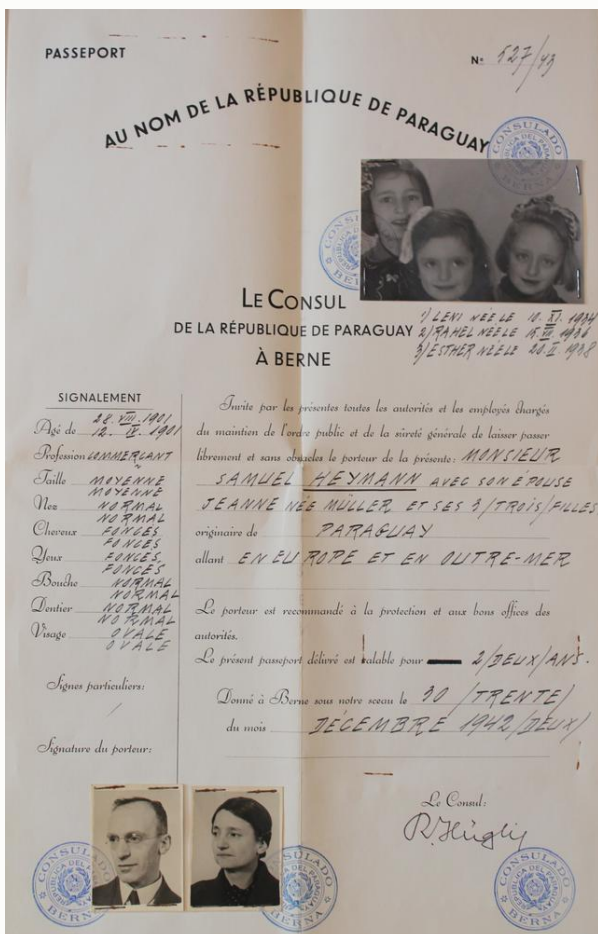 PASSEPORT
Nº 527/43
AU NOM DE LA RÉPUBLIQUE DE PARAGUAY
CONSULADO
REPUBLICA DEL PARAGUAY
BERNA
LE CONSUL
DE LA RÉPUBLIQUE DE PARAGUAY
À BERNE
1) LENI NÉE LE 10. XI. 1934
2) RAHEL NÉE LE 15. 1936
3) ESTHER NÉE LE 20. II. 1938
SIGNALEMENT
28. VIII. 1901
Agé de 12. IX. 1901
Profession COMMERÇANT
Taille MOYENNE
MOYENNE
Nez NORMAL
NORMAL
Cheveux FONCÉS
FONCES
Yeux FONCÉS
FONCES
Bouche NORMAL
NORMAL
Dentier NORMAL
NORMAL
Visage OVALE
OVALE
Signes particuliers:
Signature du porteur:
Invite par les présentes toutes les autorités et les employés chargés
du maintien de l'ordre public et de la sûreté générale de laisser passer
librement et sans obstacles le porteur de la présente: MONSIEUR
SAMUEL HEYMANN AVEC SON ÉPOUSE
JEANNE NÉE MÜLLER ET SES 3/TROIS/FILLES
originaire de PARAGUAY
allant EN EUROPE ET EN OUTRE-MER
Le porteur est recommandé à la protection et aux bons offices des
autorités.
Le présent passeport délivré est valable pour 2/DEUX/ANS.
Donné à Berne sous notre sceau le 30 /TRENTE/
du mois DÉCEMBRE 1942/DEUX/
Le Consul:
R. Hügli
CONSULADO
REPUBLICA DEL PARAGUAY
BERNA
CONSULADO
REPUBLICA DEL PARAGUAY
BERNA
CONSULADO
REPUBLICA DEL PARAGUAY
BERNA